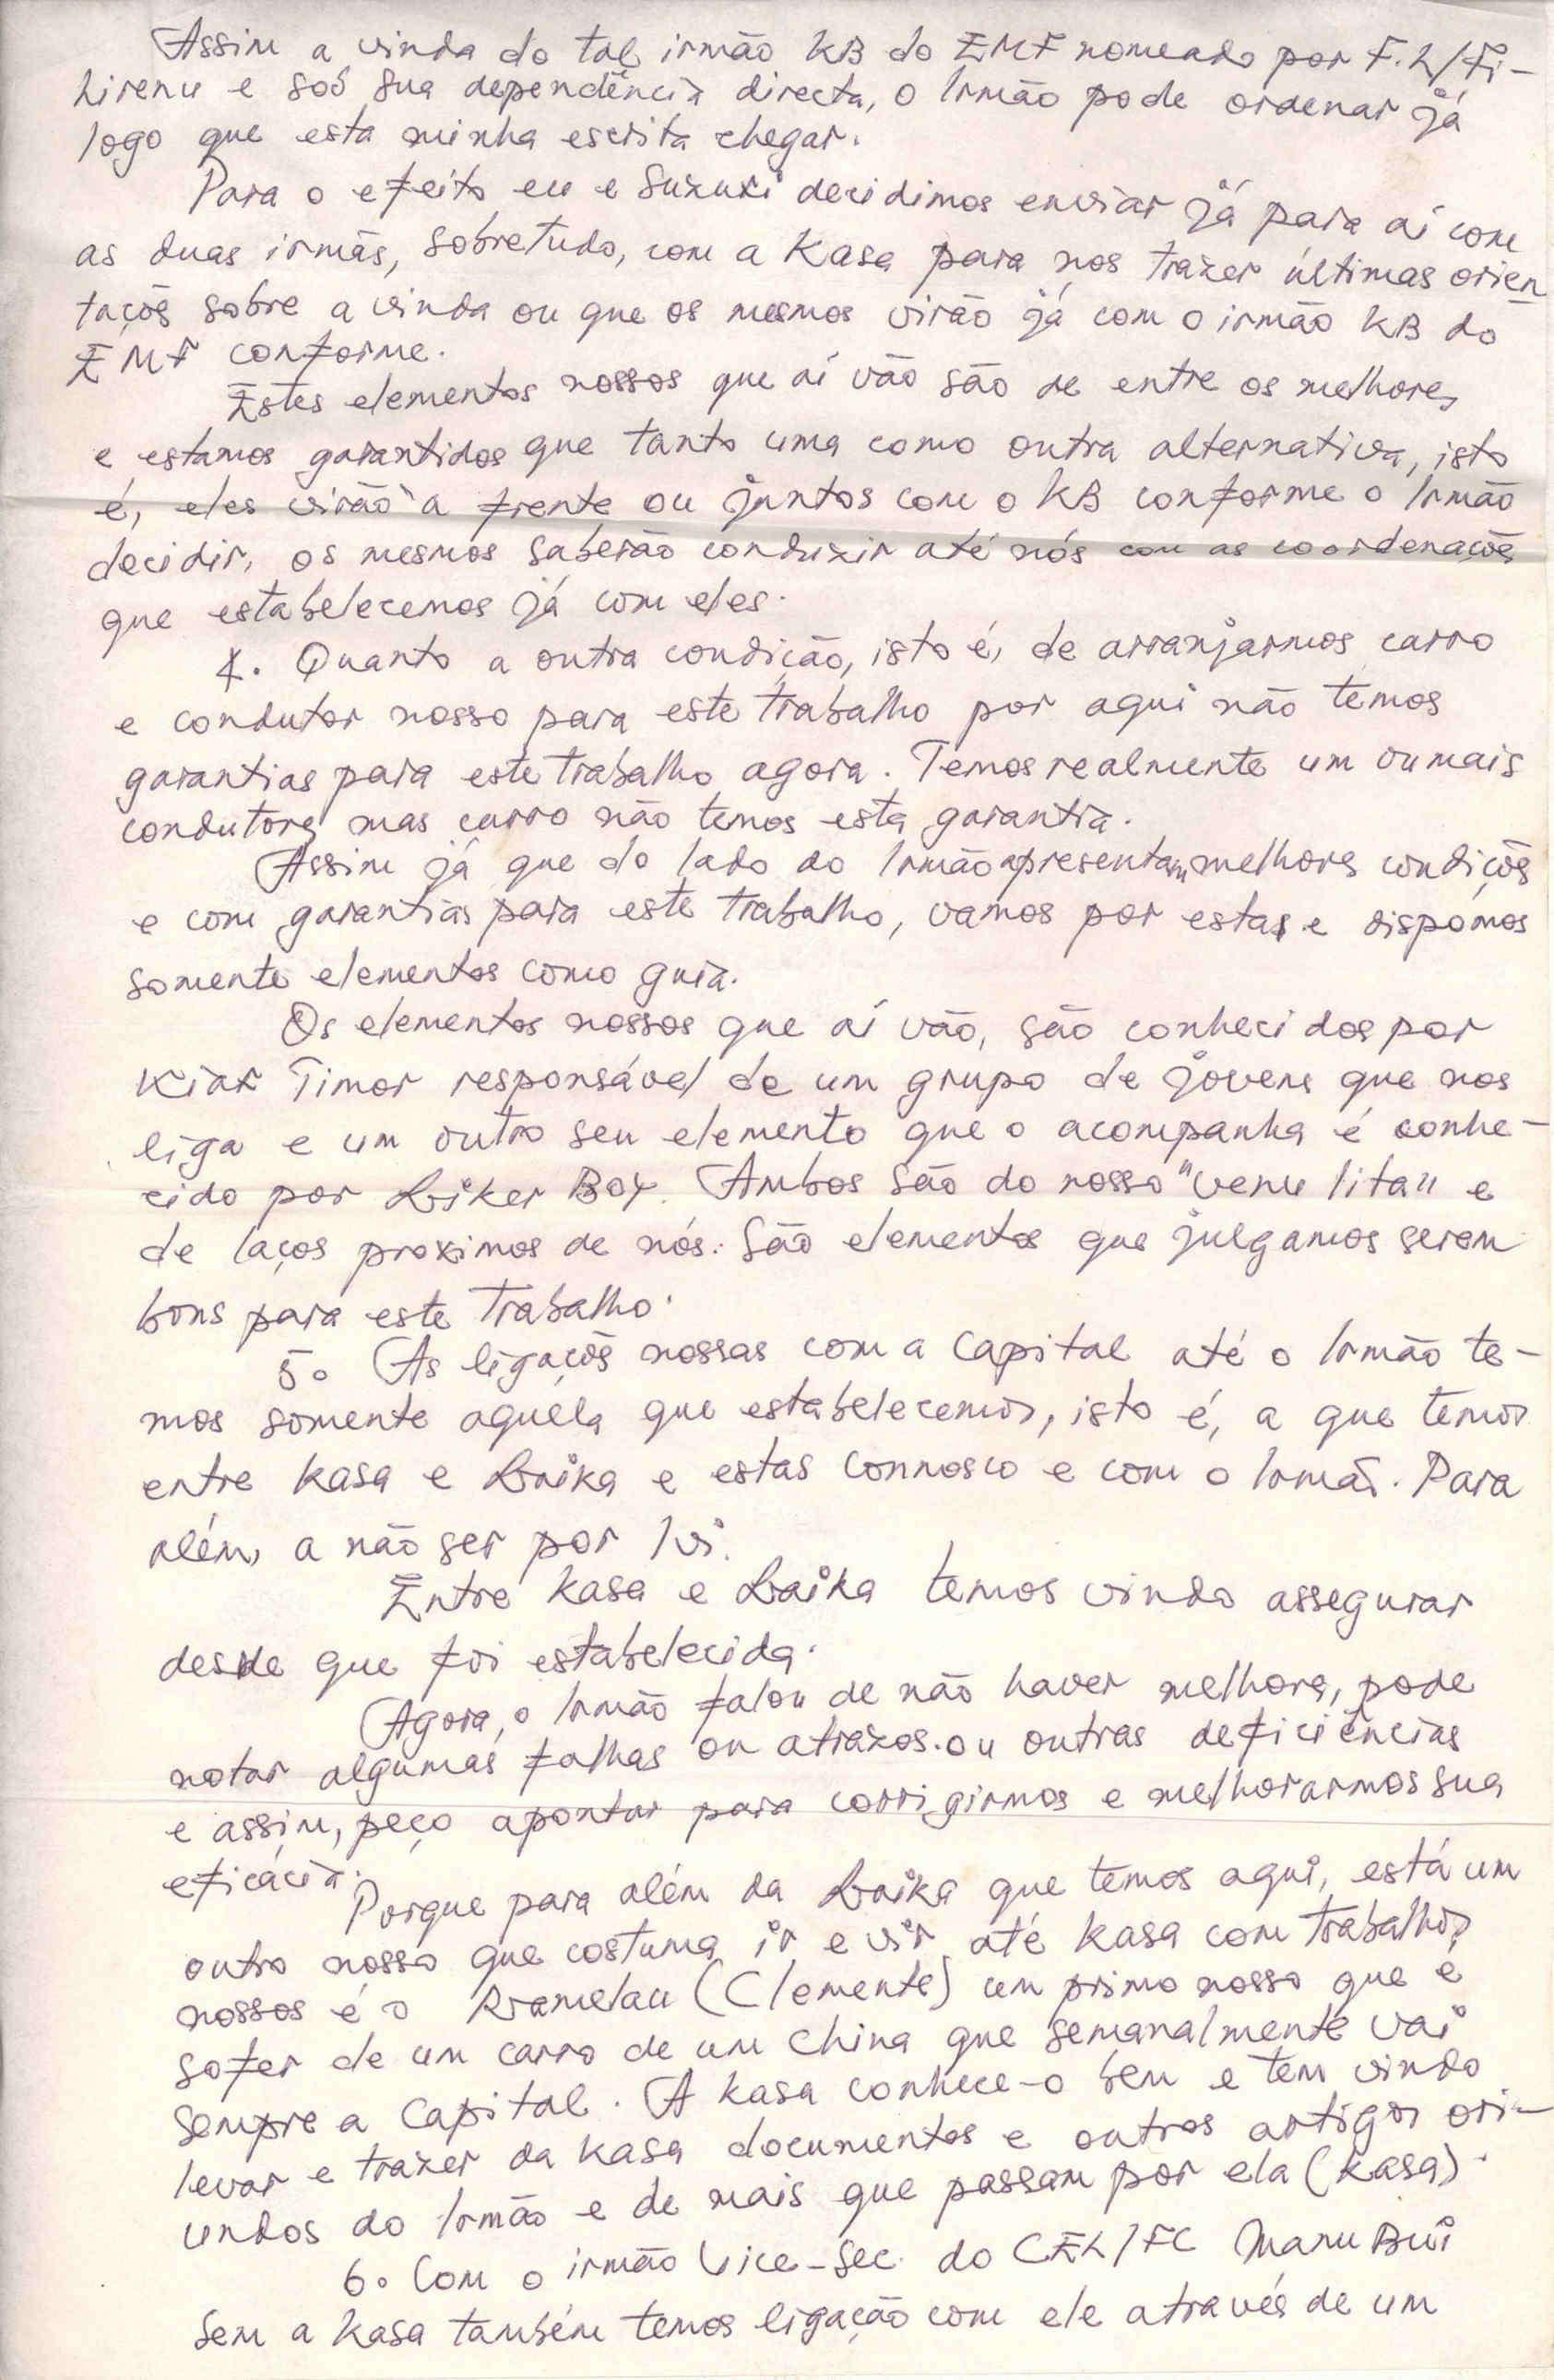 Assim a vinda do tal irmão KB do EMF nomeado por F.L/Fi-
lirenu e soó sua dependência directa, o Irmão pode ordenar já
logo que esta minha escrita chegar.
Para o efeito eu e Suzuki decidimos enviar já para aí com
as duas irmãs, sobretudo, com a Kasa para nos trazer últimas orien
taçõs sobre a vinda ou que os mesmos virão já com o irmão KB do
EMF conforme.
Estes elementos nossos que aí vão são de entre os melhores
e estamos garantidos que tanto uma como outra alternativa, isto
é, eles virão à frente ou juntos com o KB conforme o Irmão
decidir, os mesmos saberão conduzir até nós com as coordenaçõs
que estabelecemos já com eles.
4. Quanto a outra condição, isto é, de arranjarmos carro
e condutor nosso para este trabalho por aqui não temos
garantias para este trabalho agora. Temos realmente um ou mais
condutors mas carro não temos esta garantia.
Assim já que do lado do Irmão apresentam melhores condiçõs
e com garantias para este trabalho, vamos por estas e dispomos
somente elementos como guia.
Os elementos nossos que aí vão, são conhecidos por
Kiak Timor responsável de um grupo de jovens que nos
liga e um outro seu elemento que o acompanha é conhe-
cido por Liker Boy. Ambos são do nosso "venu lita" e
de laços proximos de nós. São elementos que julgamos serem
bons para este trabalho.
5. As ligaçõs nossas com a Capital até o Irmão te-
mos somente aquela que estabelecemos, isto é, a que temos
entre Kasa e Laika e estas connosco e com o Irmão. Para
além, a não ser por Ivi.
Entre Kasa e Laika temos vindo assegurar
desde que foi estabelecida.
Agora, o Irmão falou de não haver melhora, pode
notar algumas falhas ou atrazos ou outras deficiências
e assim, peço apontar para corrigirmos e melhorarmos sua
eficácia.
Porque para além da Laika que temos aqui, está um
outro nosso que costuma ir e vir até Kasa com trabalhos
nossos é o Ramelau (Clemente) um primo nosso que é
sofer de um carro de um china que semanalmente vai
sempre a Capital. A Kasa conhece-o bem e tem vindo
levar e trazer da Kasa documentos e outros artigos ori-
undos do Irmão e de mais que passam por ela (Kasa).
6. Com o irmão Vice-Sec. do CEL/FC Manu Bui
sem a Kasa também temos ligação com ele através de um